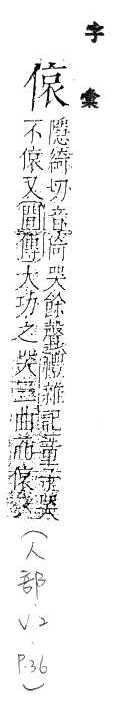 字彙
偯
隱綺切音倚哭餘聲禮雜記童子哭
不偯又間傳大功之哭三曲而偯
(人部．V2．P.36)